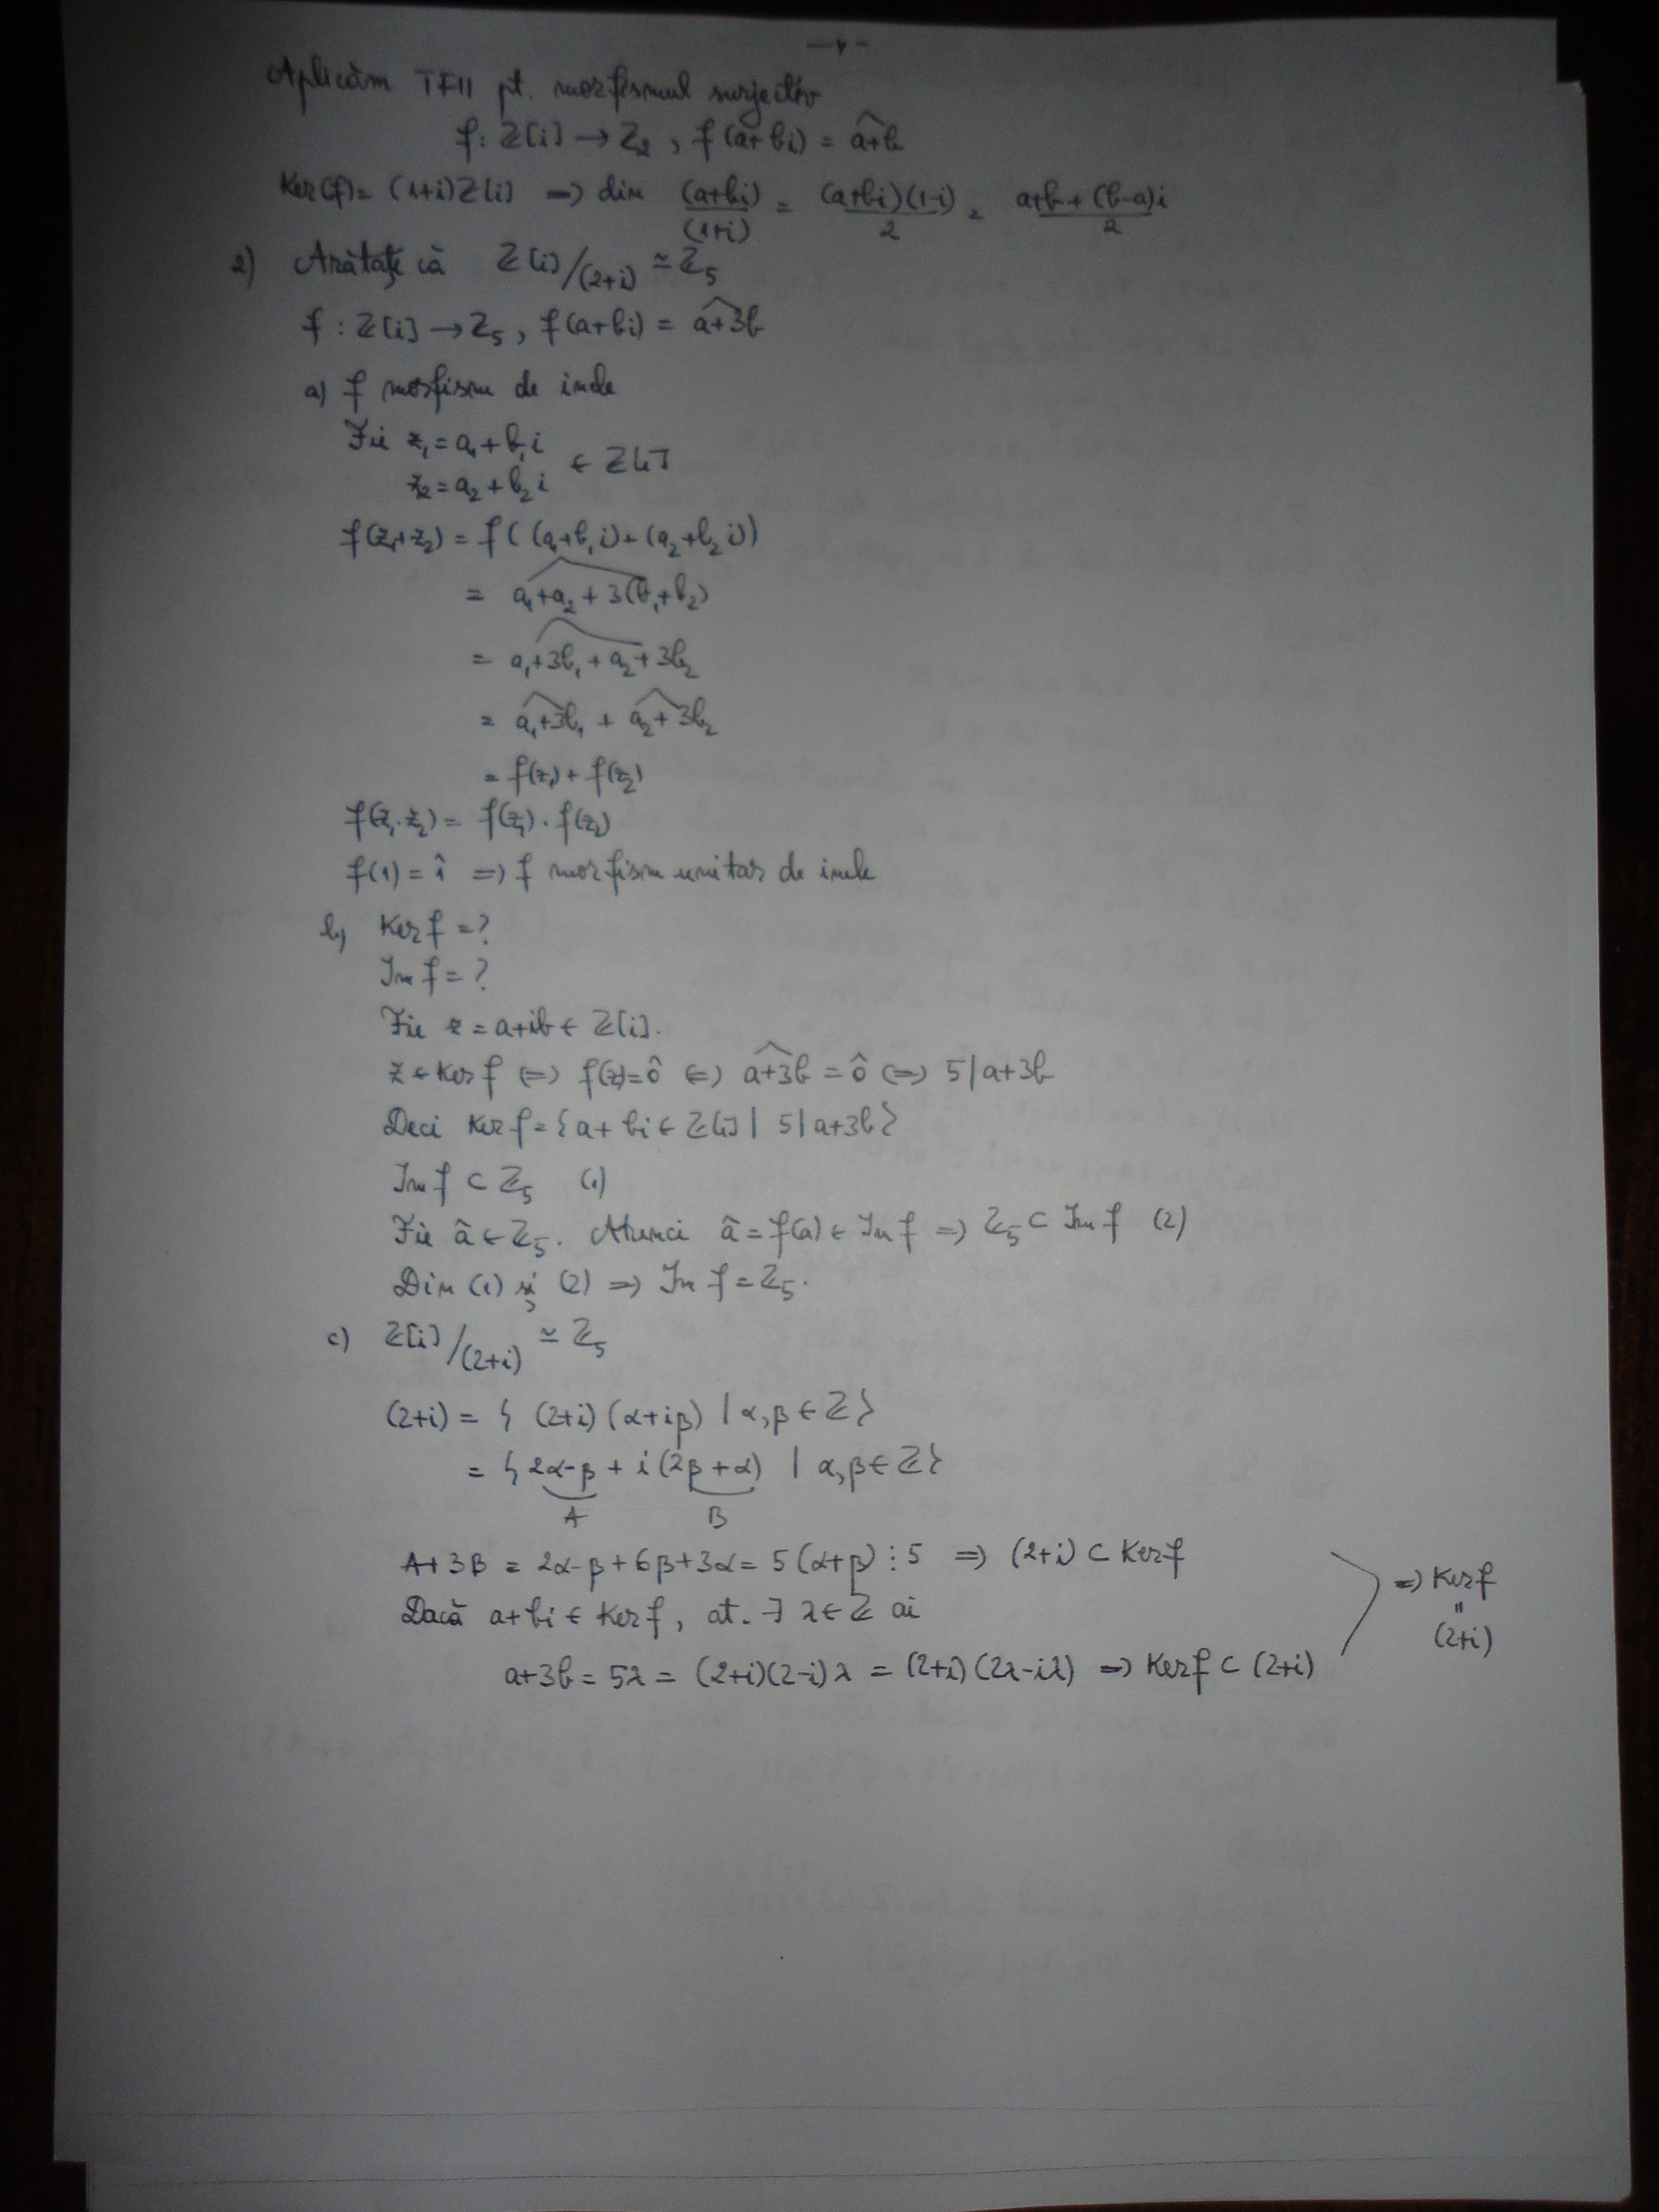 Aplicăm TFII pt. morfismul surjectiv
f: Z[i] → Z₂ , f(a+bi) = \widehat{a+b}
Ker(f) = (1+i)Z[i] => din (a+bi)/(1+i) = (a+bi)(1-i)/2 = a+b+(b-a)i/2
2) Arătați că Z[i]/(2+i) ≃ Z₅
f : Z[i] → Z₅ , f(a+bi) = \widehat{a+3b}
a) f morfism de inele
Fie z₁ = a₁ + b₁i
z₂ = a₂ + b₂i ∈ Z[i]
f(z₁+z₂) = f((a₁+b₁i)+(a₂+b₂i))
= \widehat{a₁+a₂+3(b₁+b₂)}
= \widehat{a₁+3b₁+a₂+3b₂}
= \widehat{a₁+3b₁} + \widehat{a₂+3b₂}
= f(z₁) + f(z₂)
f(z₁·z₂) = f(z₁)·f(z₂)
f(1) = \hat{1} => f morfism unitar de inele
b) Ker f = ?
Im f = ?
Fie z = a+ib ∈ Z[i].
z ∈ Ker f <=> f(z) = \hat{0} <=> \widehat{a+3b} = \hat{0} <=> 5 | a+3b
Deci Ker f = {a+bi ∈ Z[i] | 5 | a+3b}
Im f ⊂ Z₅ (1)
Fie \hat{a} ∈ Z₅. Atunci \hat{a} = f(a) ∈ Im f => Z₅ ⊂ Im f (2)
Din (1) și (2) => Im f = Z₅.
c) Z[i]/(2+i) ≃ Z₅
(2+i) = { (2+i)(α+iβ) | α,β ∈ Z }
= { 2α-β + i(2β+α) | α,β ∈ Z }
A B
A+3B = 2α-β+6β+3α = 5(α+β) ⋮ 5 => (2+i) ⊂ Ker f
Dacă a+bi ∈ Ker f, at. ∃ λ ∈ Z ai
a+3b = 5λ = (2+i)(2-i)λ = (2+i)(2λ-iλ) => Ker f ⊂ (2+i)
=> Ker f
=
(2+i)